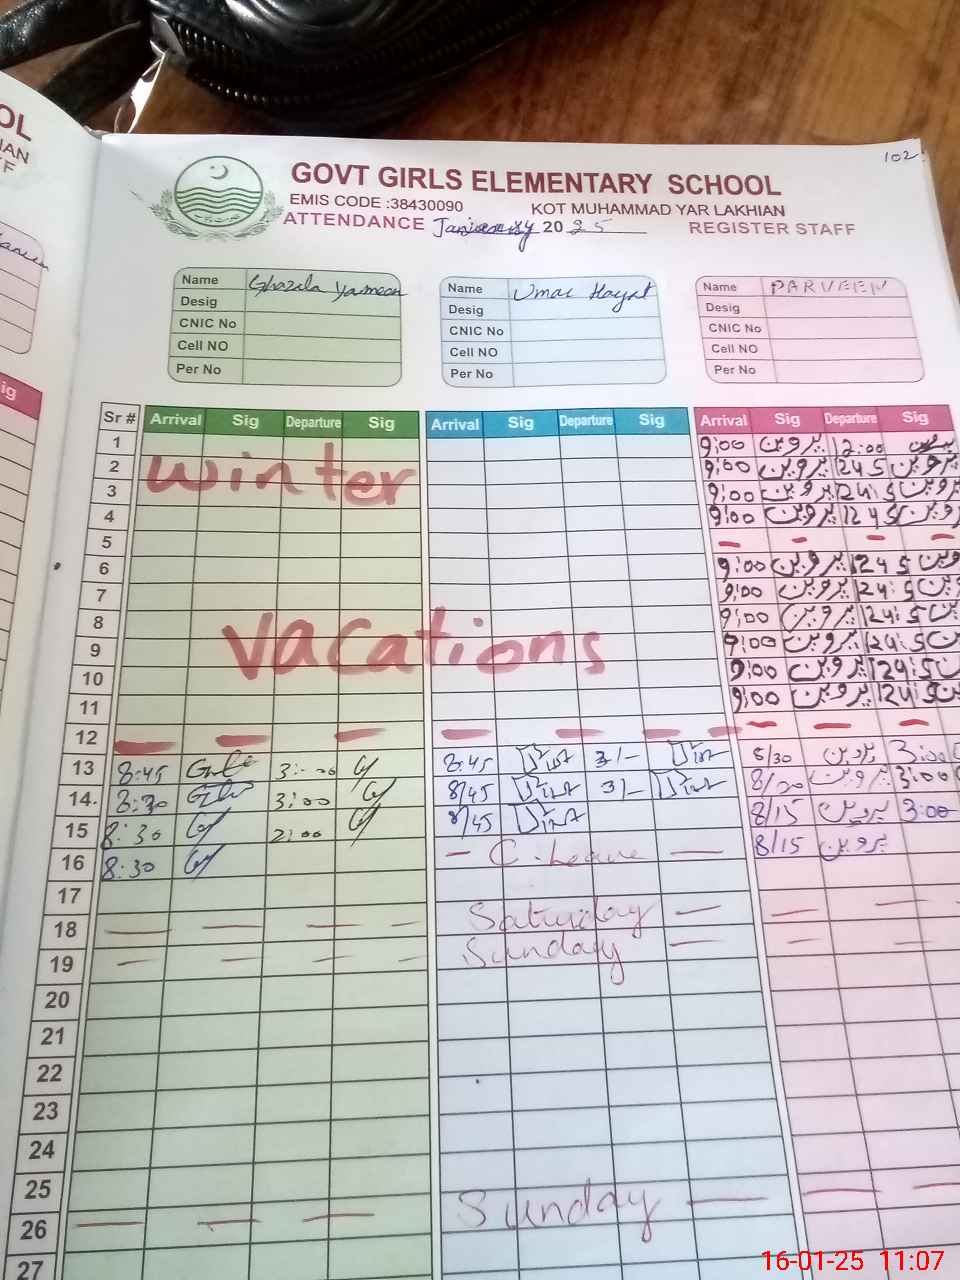 OL
IAN
F
ig
102
GOVT GIRLS ELEMENTARY SCHOOL
EMIS CODE :38430090 KOT MUHAMMAD YAR LAKHIAN
ATTENDANCE January 2025 REGISTER STAFF
Name Ghazala Yasmeen Name Umar Hayat Name PARVEEN
Desig Desig Desig
CNIC No CNIC No CNIC No
Cell NO Cell NO Cell NO
Per No Per No Per No
Sr # Arrival Sig Departure Sig Arrival Sig Departure Sig Arrival Sig Departure Sig
1 9:00 پروین 12:00
2 winter 9:00 پروین 1245 پروین
3 9:00 پروین 124:5 پروین
4 9:00 پروین 1245 پروین
5 — — — —
6 9:00 پروین 1245 پروین
7 9:00 پروین 124:5 پروین
8 9:00 پروین 124:5 پروین
9 Vacations 9:00 پروین 124:5 پروین
10 9:00 پروین 124:5 پروین
11 9:00 پروین 124:5 پروین
12 — — — — — — — — —
13 8:45 3:00 8:45 3/- 8/30 پروین 3:00
14 8:30 3:00 8/45 3/- 8/30 پروین 3:00
15 8:30 2:00 8/45 8/15 پروین 3:00
16 8:30 — C. Leave — 8/15 پروین
17
18 — — — — Saturday — — —
19 — — — — Sunday — — —
20
21
22
23
24
25
26 — — — Sunday — — —
27
16-01-25 11:07